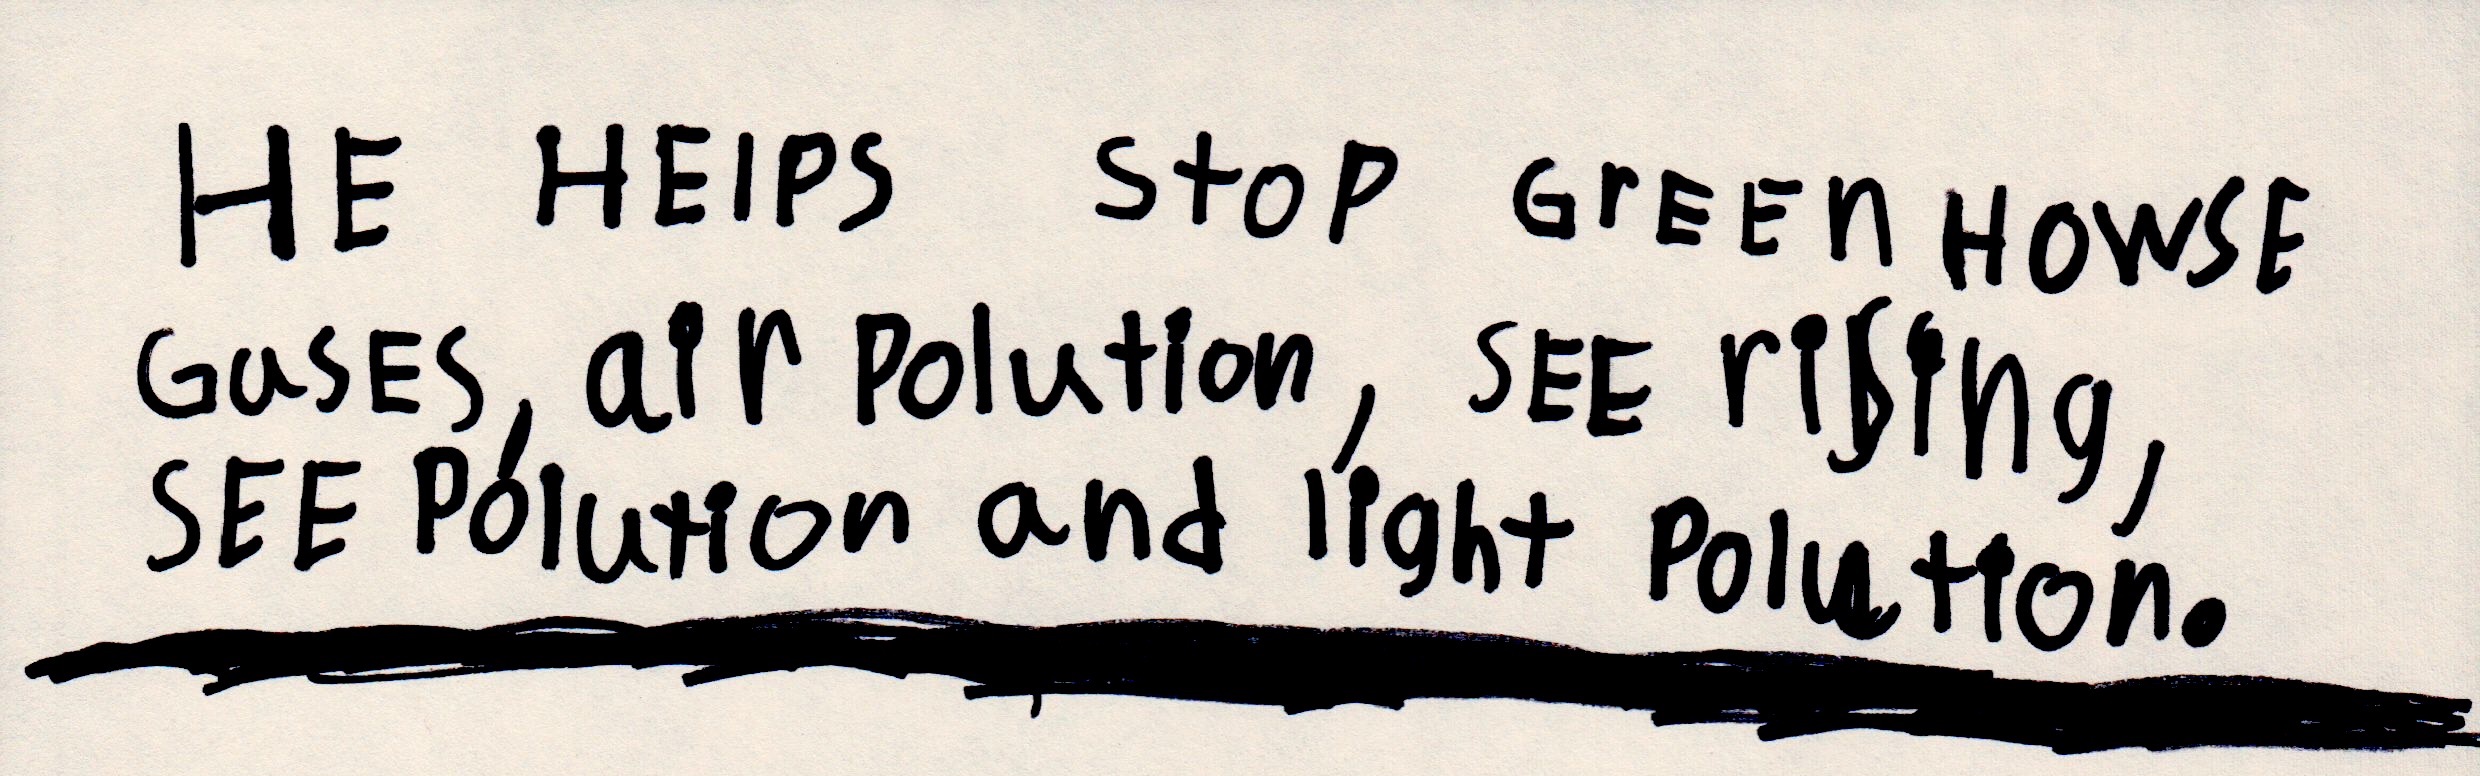 HE HElPS StOP GrEEn HOWSE
GaSES, air Polution, SEE rising,
SEE Polution and light Polution.